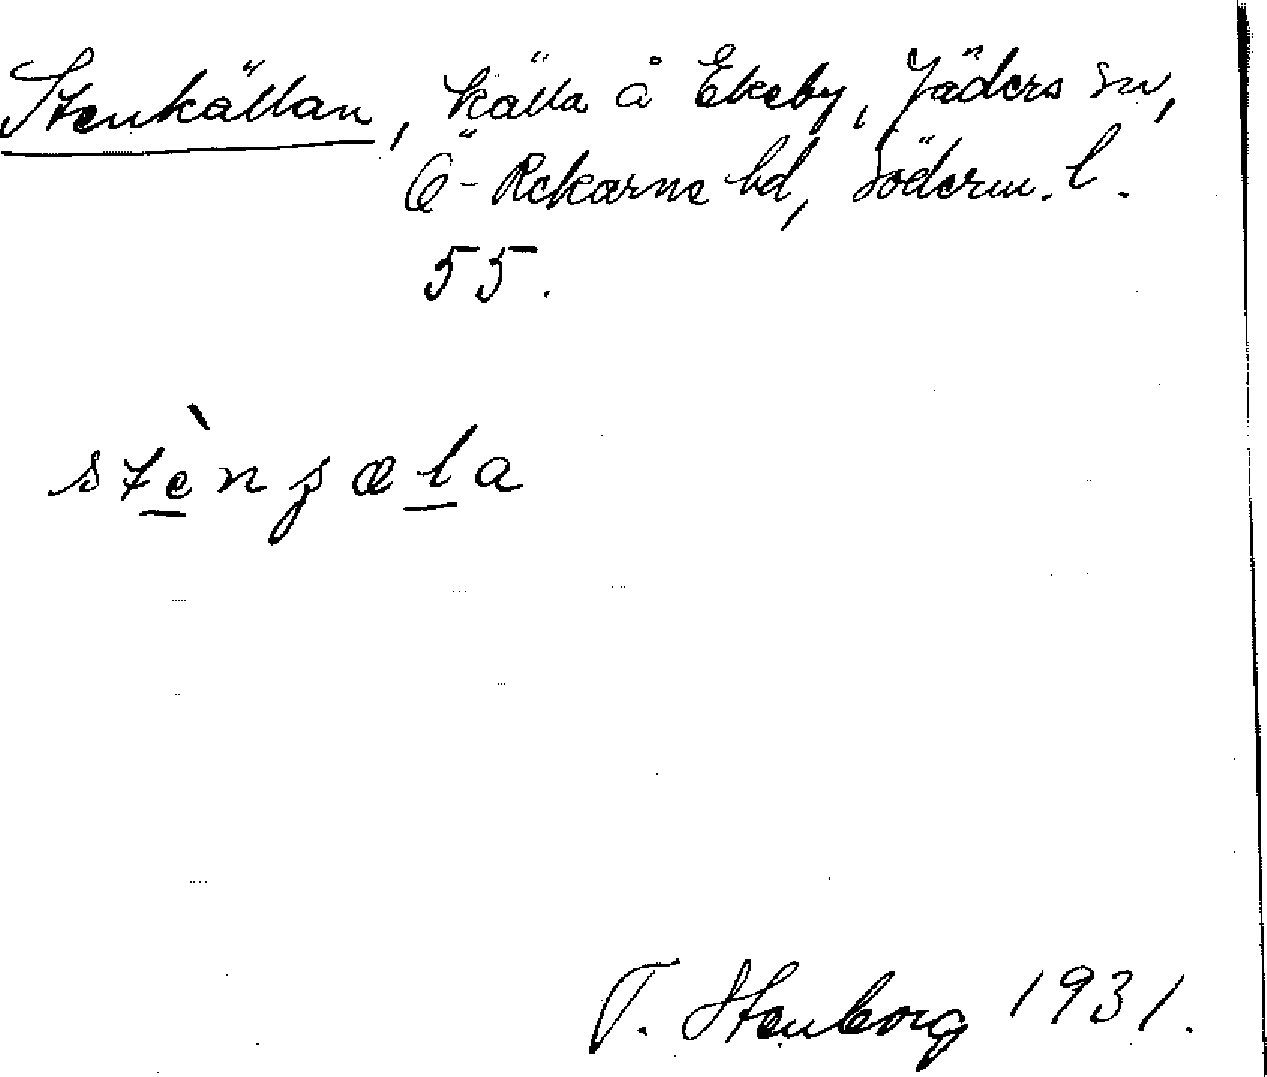 Stenkällan, källa å Ekeby, Jäders sn,
Ö-Rekarne hd, Söderm. l.
55.
stènʂæla
T. Stenborg 1931.